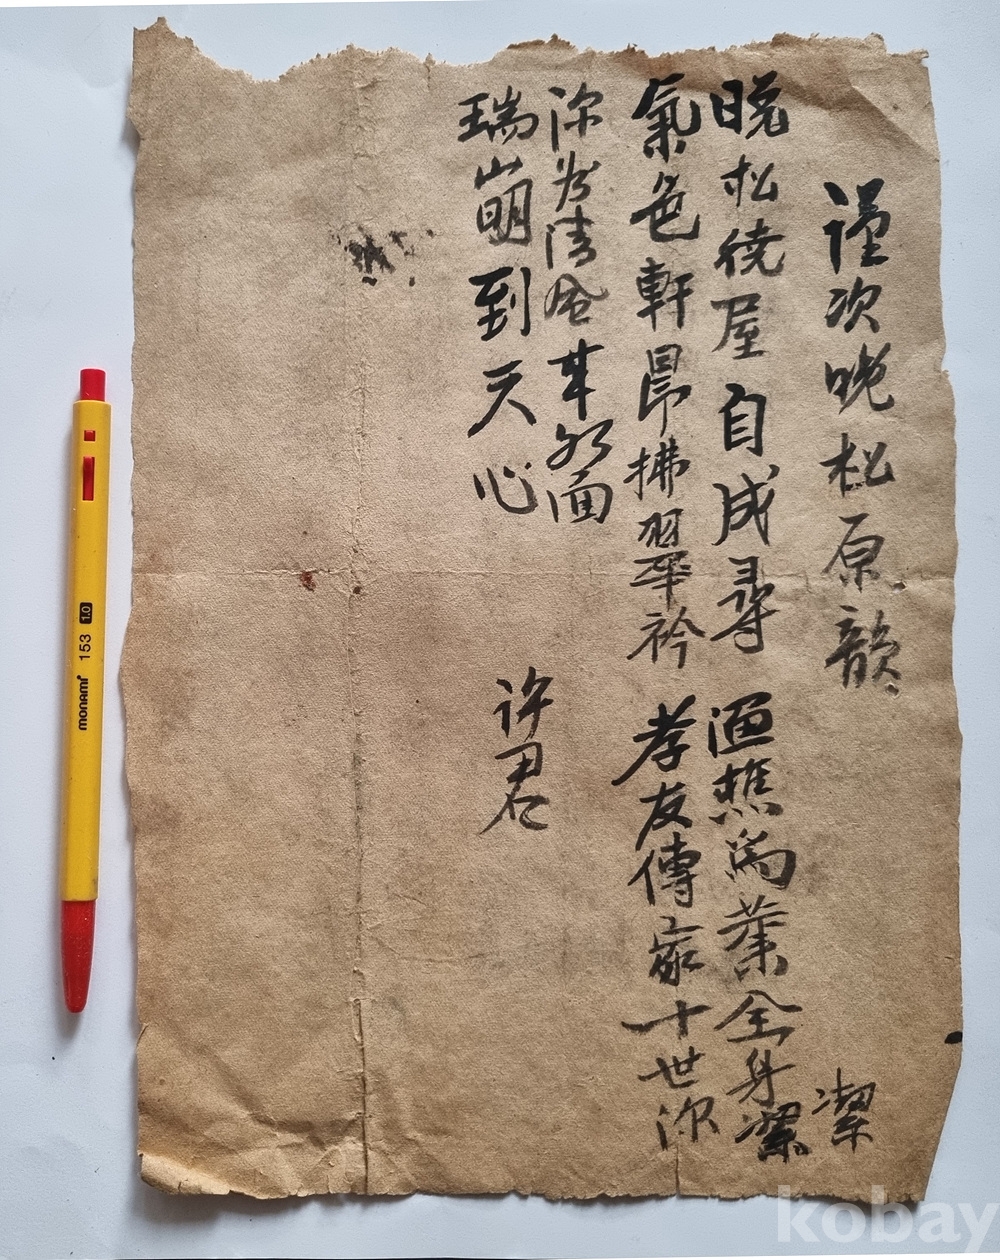 謹次晩松原韻
潔
晩松繞屋自成尋 樵爲業全身潔
氣色軒昻拂翠衿 孝友傳家十世深
深清風面
瑞到天心
許君
monami 153 1.0
kobay